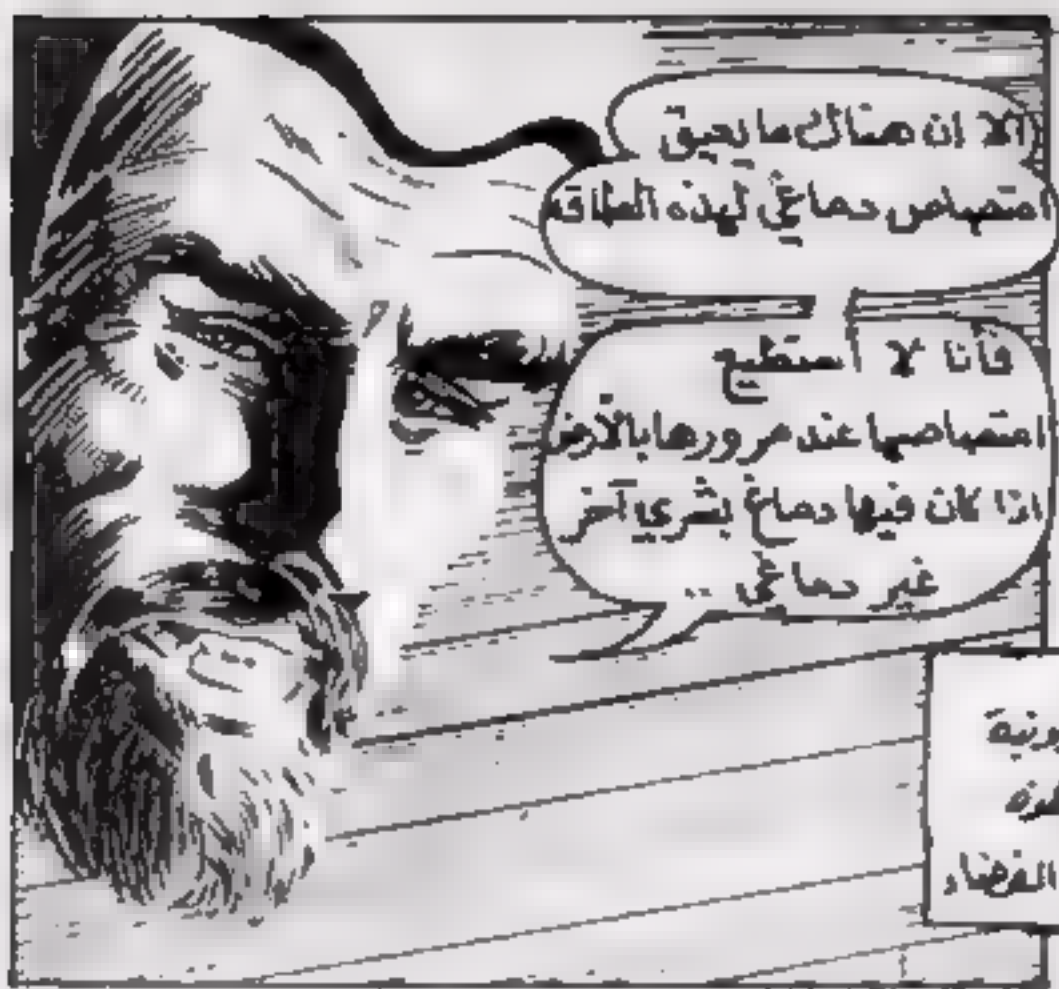 الا ان هناك ما يعيق
امتصاص دماغي لهذه الطاقه
فأنا لا استطيع
امتصاصها عند مرورها بالأرض
اذا كان فيها دماغ بشري آخر
غير دماغي ..
الفضاء